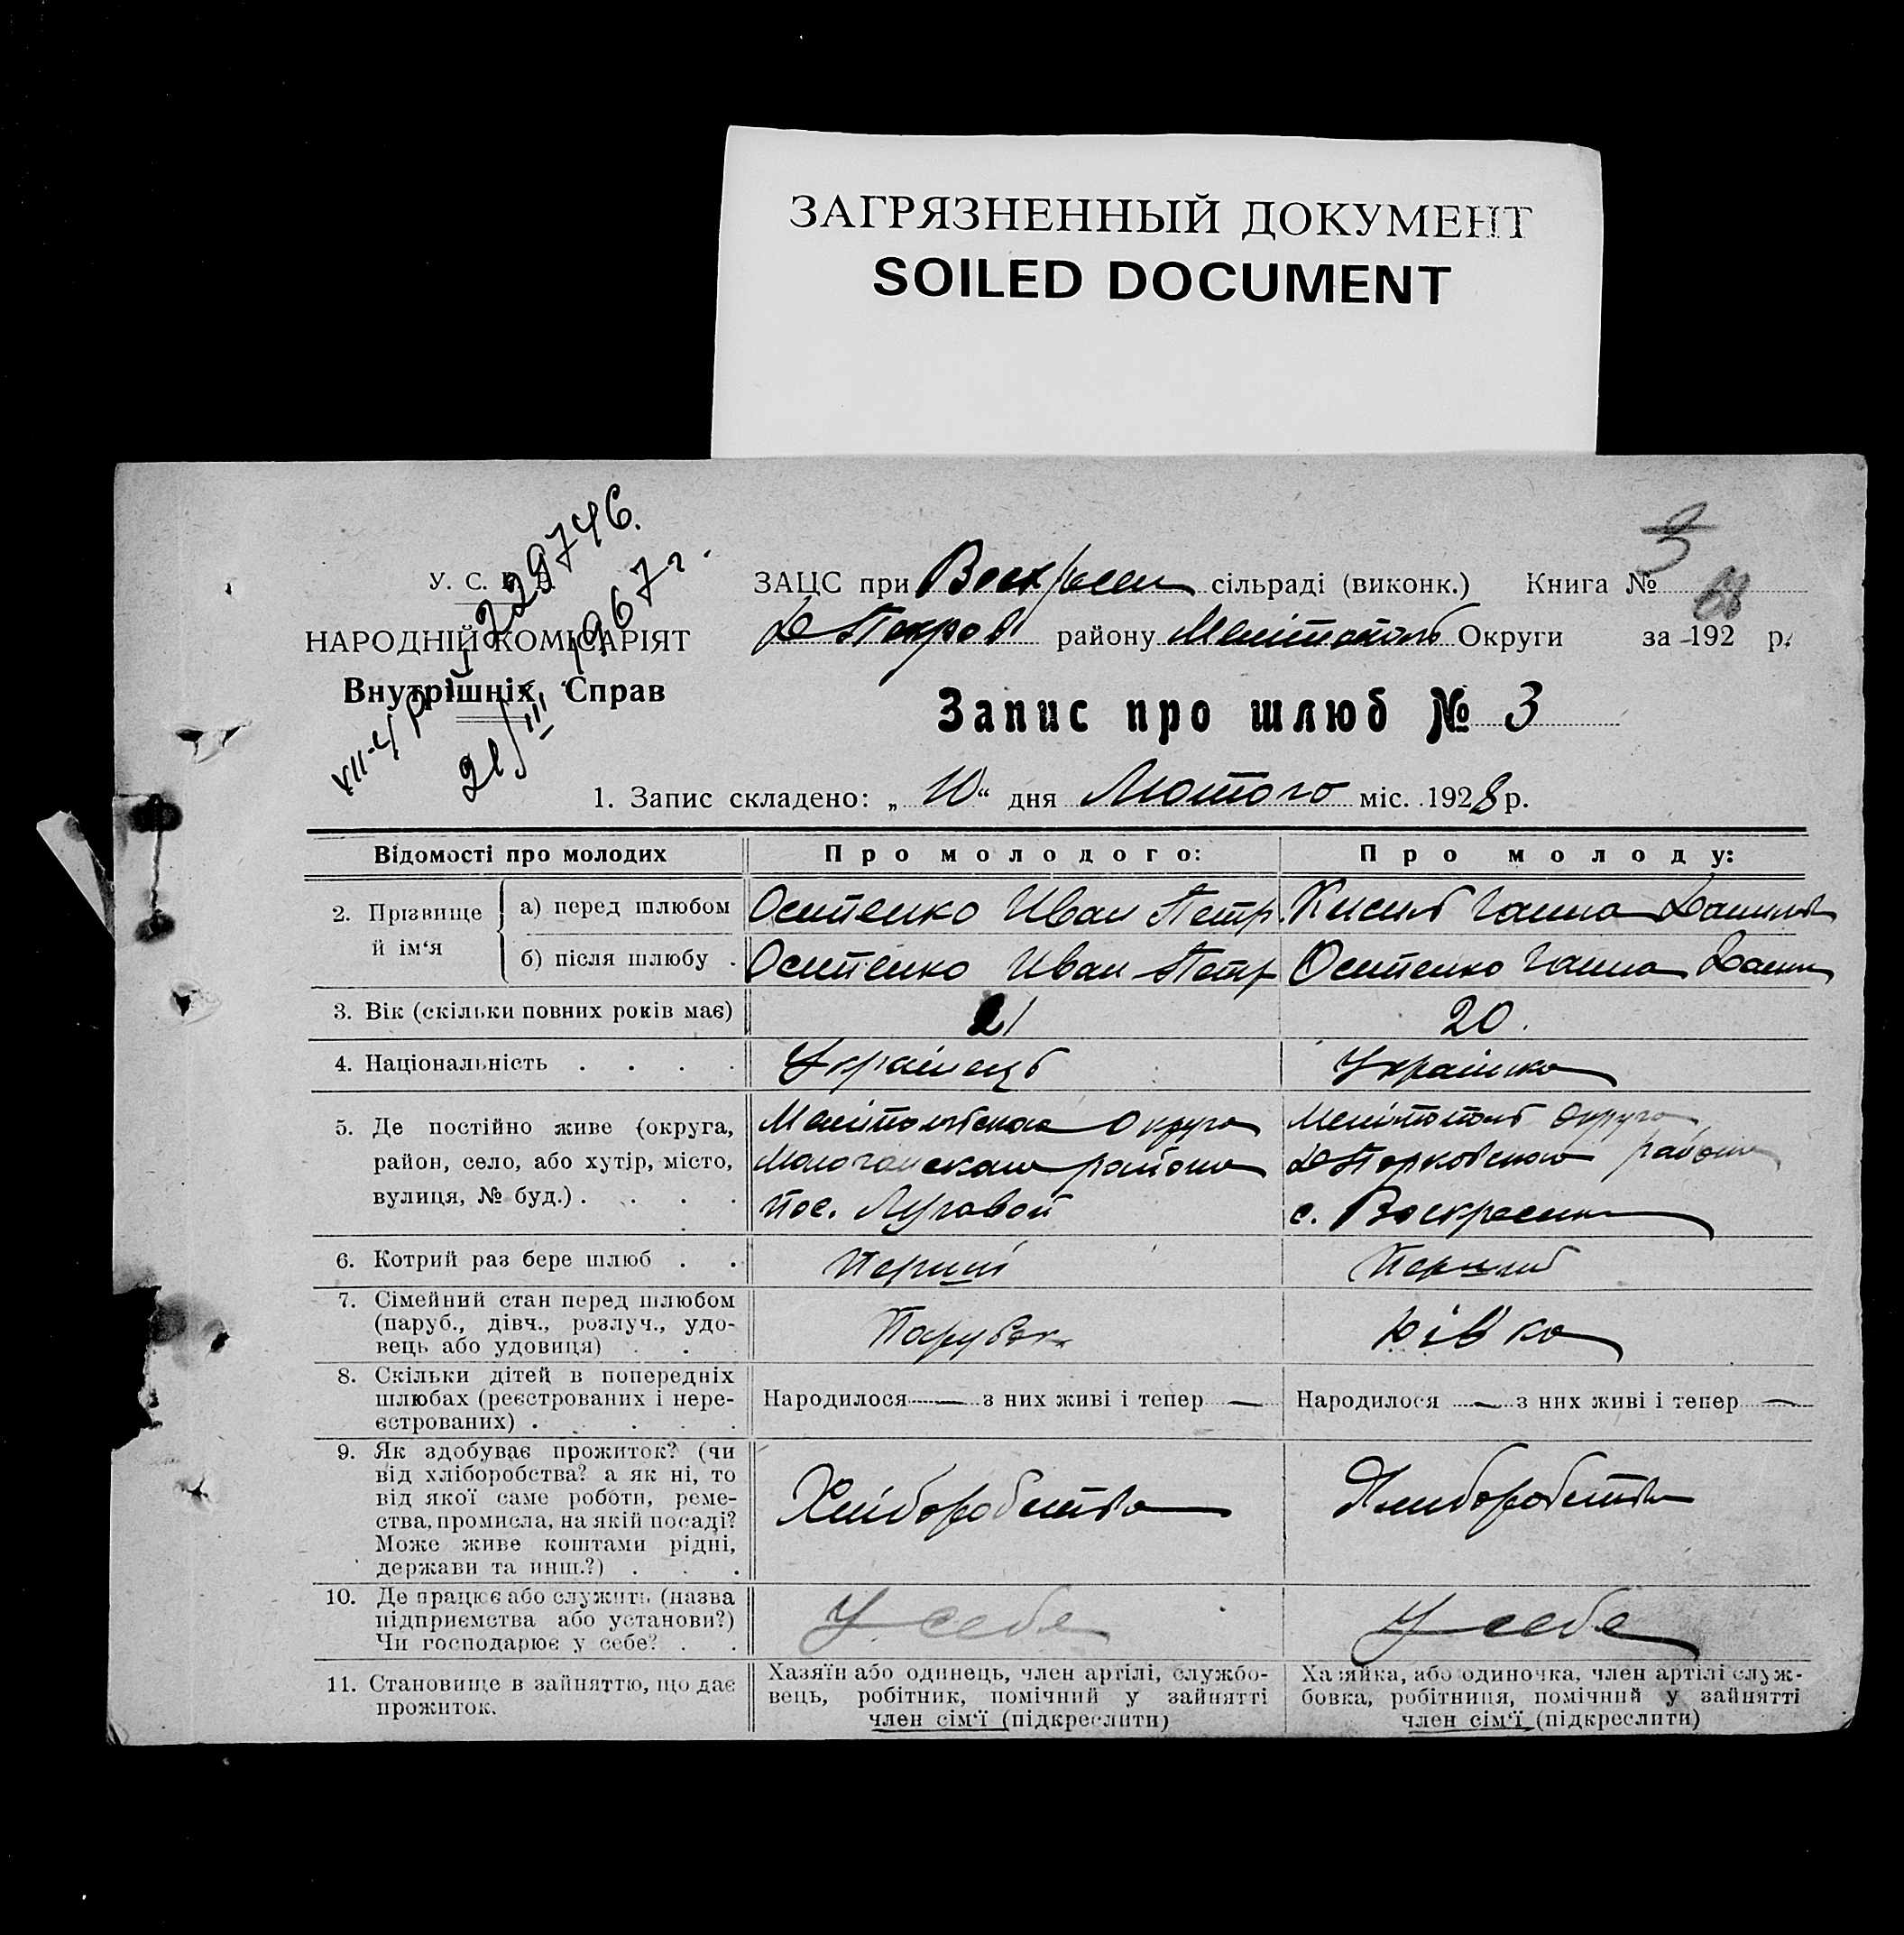 ЗАГРЯЗНЕННЫЙ ДОКУМЕНТ
SOILED DOCUMENT
229746.
21/III 1967 г.
У. С.
НАРОДНІЙ КОМІСАРІЯТ
Внутрішніх Справ
ЗАЦС при Воскресен сільраді (виконк.) Книга №
району Мелітополь Округи за 192 р.
Запис про шлюб № 3
1. Запис складено: „ 10 “ дня Лютого міс. 1928 р.
Відомості про молодих Про молодого: Про молоду:
2. Прізвище й ім‘я
а) перед шлюбом Осипенко Иван Петр. Кисиль Ганна Данилов
б) після шлюбу . Осипенко Иван Петр Осипенко Ганна Данил
3. Вік (скільки повних років має) 21 20.
4. Національність . . . . Українець Українка
5. Де постійно живе (округа, Округа Мелітополь округа
район, село, або хутір, місто, району району
вулиця, № буд.) . . . . пос. Луговой с. Воскресенка
6. Котрий раз бере шлюб . . Перший Перший
7. Сімейний стан перед шлюбом
(паруб., дівч., розлуч., удо- Парубок Дівка
вець або удовиця) . .
8. Скільки дітей в попередніх
шлюбах (реєстрованих і нере- Народилося — з них живі і тепер — Народилося — з них живі і тепер —
єстрованих) . . . . .
9. Як здобуває прожиток? (чи
від хліборобства? а як ні, то
від якої саме роботи, реме- Хліборобство Хлиборобство
ства, промисла, на якій посаді?
Може живе коштами рідні,
держави та инш.?) . . .
10. Де працює або служить (назва
підприємства або установи?) У себе У себе
Чи господарює у себе? . .
11. Становище в зайняттю, що дає Хазяїн або одинець, член артілі, службо- Хазяйка, або одиночка, член артілі служ-
прожиток. вець, робітник, помічний у зайнятті бовка, робітниця, помічний у зайнятті
член сім‘ї (підкреслити) член сім‘ї (підкреслити)